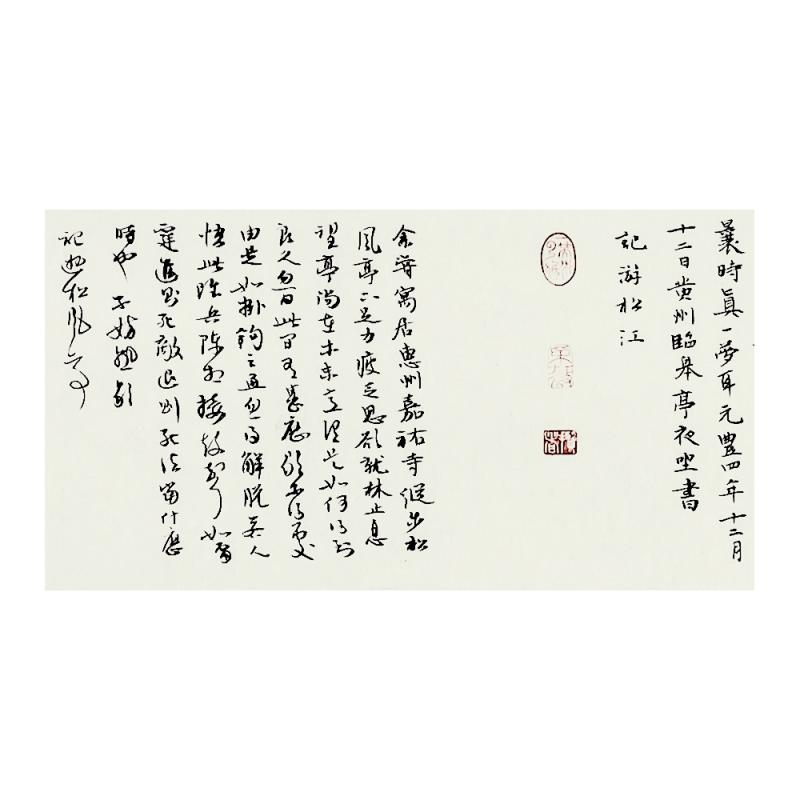 曩時真一夢耳元豐四年十二月
十二日黃州臨皋亭夜坐書
記游松江
余嘗寓居惠州嘉祐寺縱步松
風亭下足力疲乏思欲就林止息
望亭尚在木末意謂是如何得到
良久忽曰此間有甚麼歇不得處
由是如掛鉤之魚忽得解脫若人
悟此雖兵陣相接鼓聲如雷
霆進則死敵退則死法當什麼
時也不妨熟歇
記遊松風亭